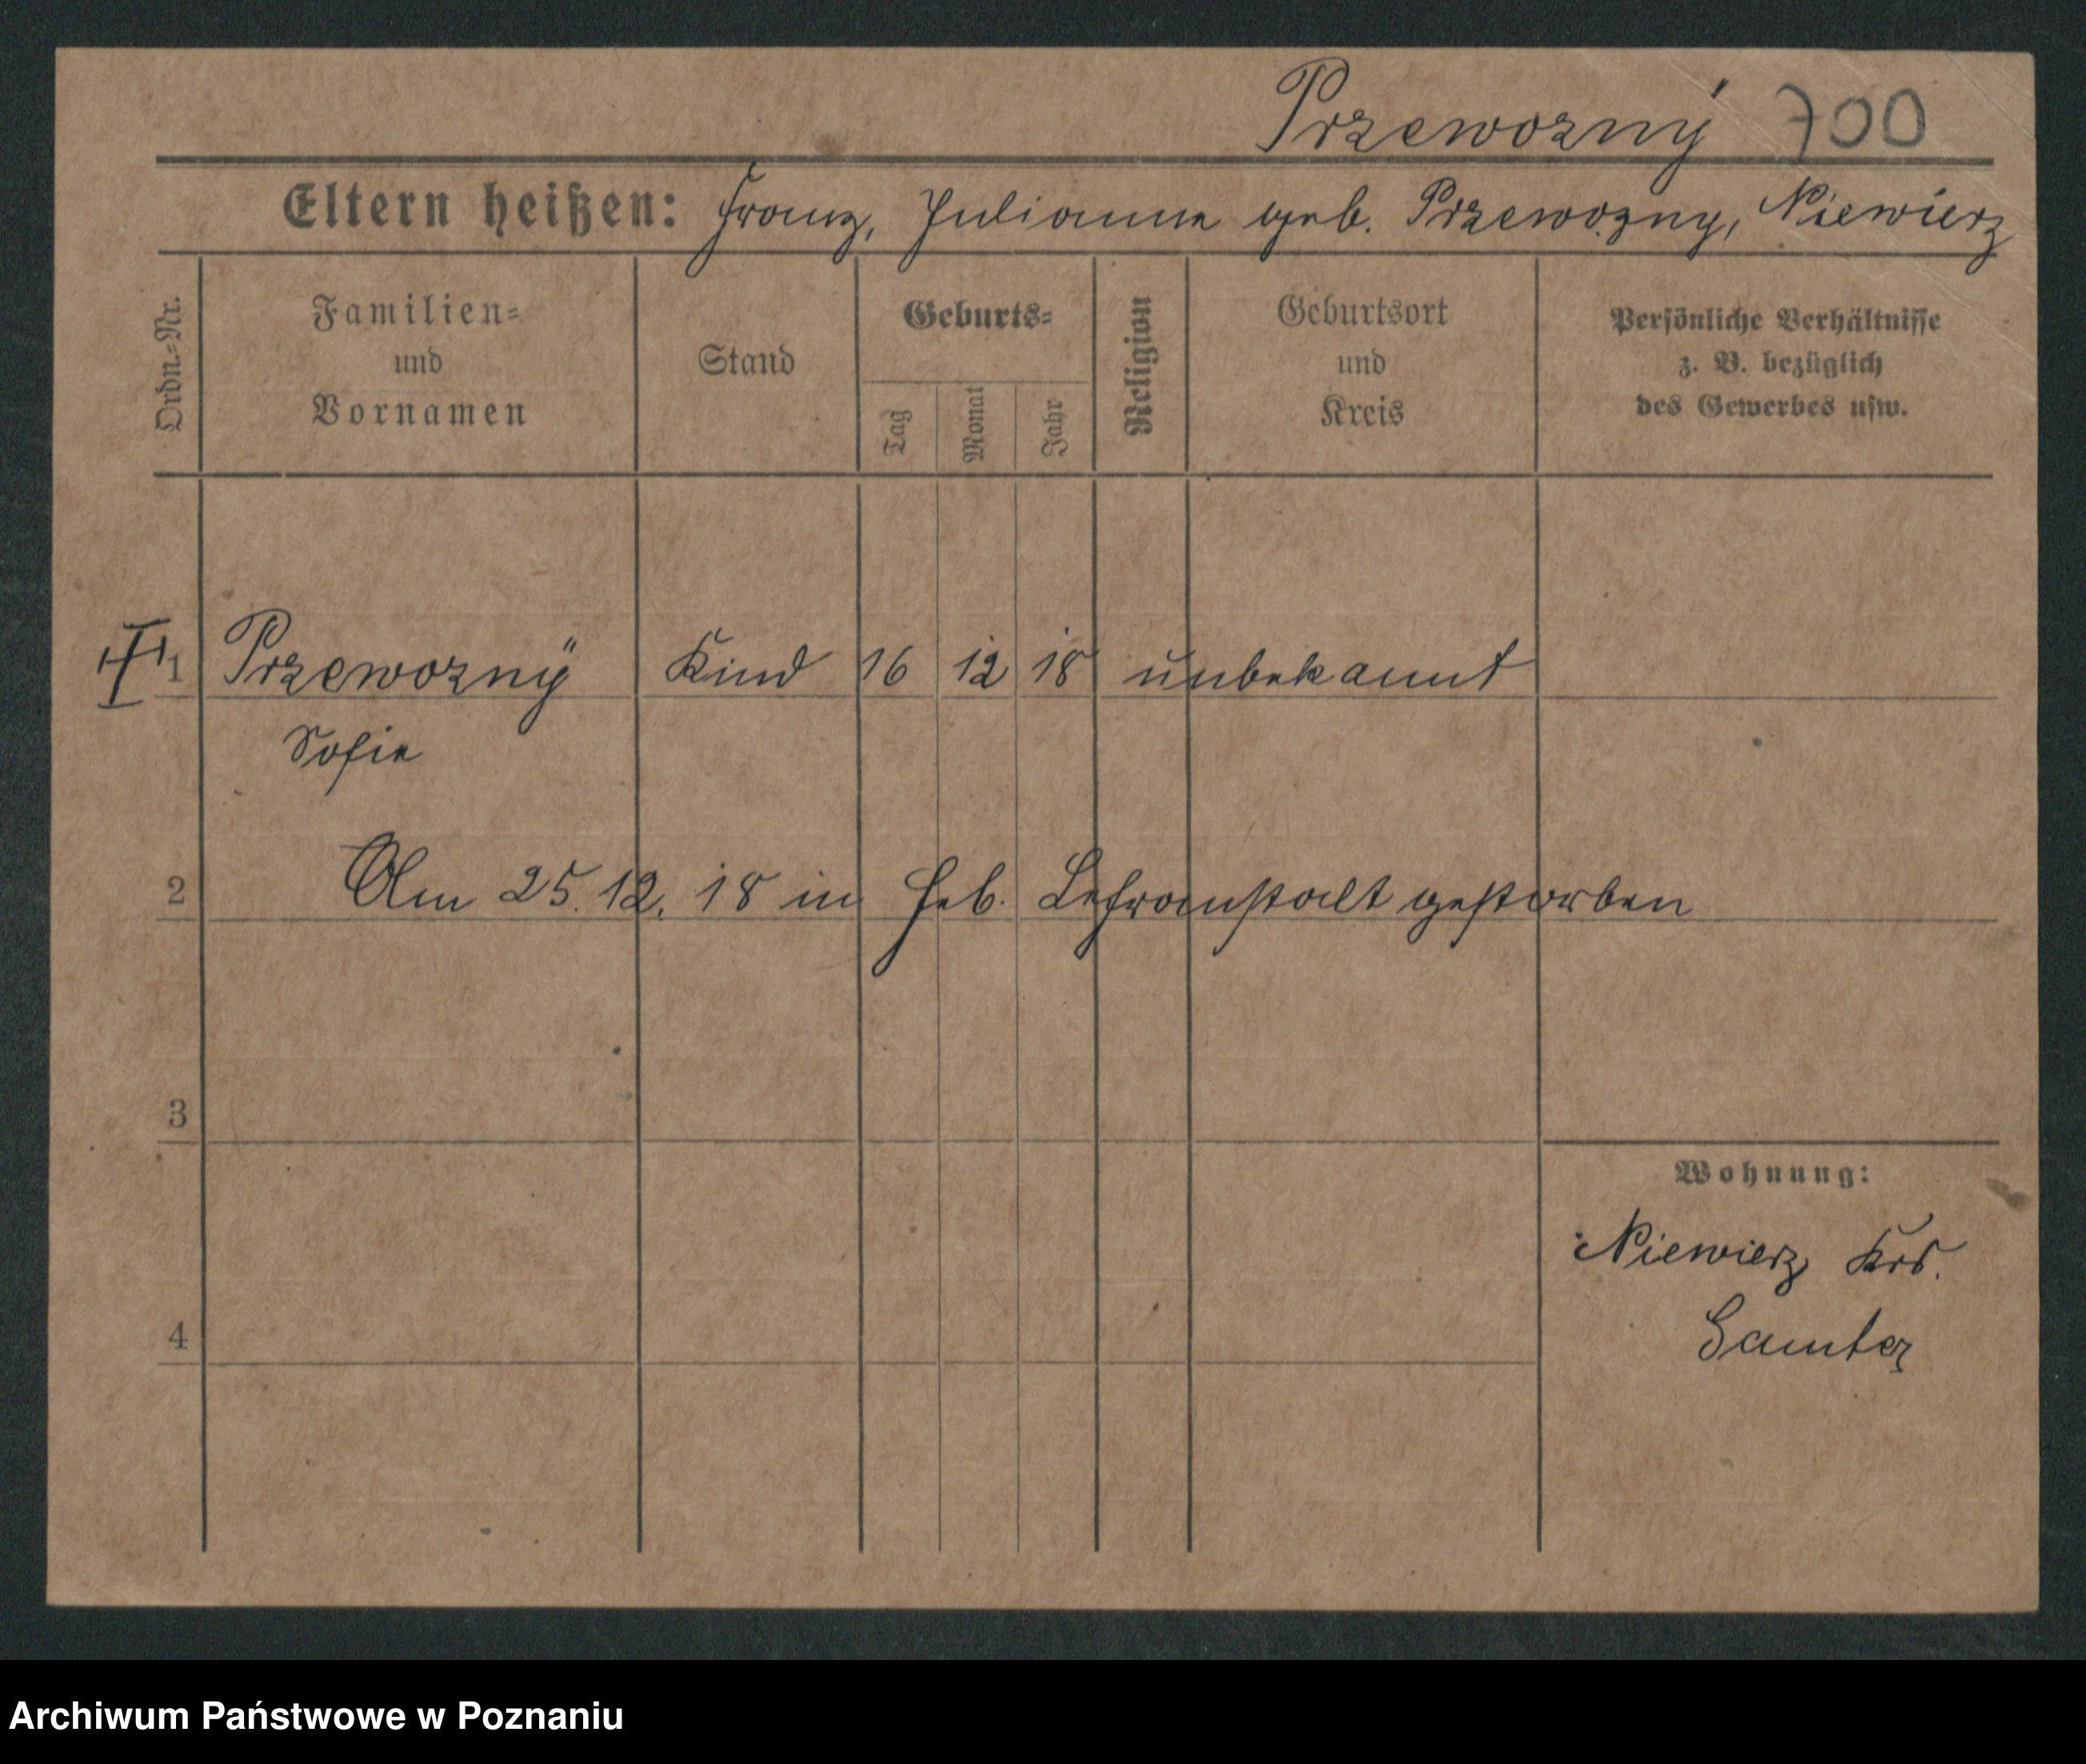 Przewozny 700
Eltern heißen: Franz, Julianna geb. Przewozny, Niewierz
Ordn.-Nr.
Familien-
und
Vornamen
Stand
Geburts-
Tag
Monat
Jahr
Religion
Geburtsort
und
Kreis
Persönliche Verhältnisse
z. B. bezüglich
des Gewerbes usw.
1 Przewozny Kind 16 12 18 unbekannt
Sofie
2 Am 25.12.18 in Heb. Lehranstalt gestorben
3
Wohnung:
Niewierz Krs.
Samter
4
Archiwum Państwowe w Poznaniu